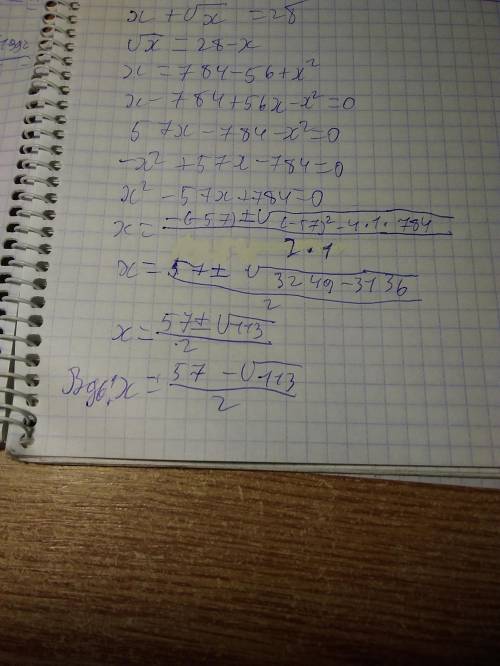 x + √x = 28
√x = 28-x
x = 784-56+x²
x-784+56x-x²=0
57x-784-x²=0
-x²+57x-784=0
x²-57x+784=0
x= -(-57)±√(-57)²-4·1·784 / 2·1
x= 57± √3249-3136 / 2
x= 57±√113 / 2
x= 57-√113 / 2